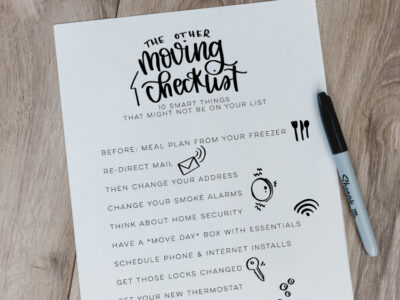 THE OTHER
moving
checklist
10 SMART THINGS
THAT MIGHT NOT BE ON YOUR LIST
BEFORE: MEAL PLAN FROM YOUR FREEZER
RE-DIRECT MAIL
THEN CHANGE YOUR ADDRESS
CHANGE YOUR SMOKE ALARMS
THINK ABOUT HOME SECURITY
HAVE A *MOVE DAY* BOX WITH ESSENTIALS
SCHEDULE PHONE & INTERNET INSTALLS
GET THOSE LOCKS CHANGED
YOUR NEW THERMOSTAT
Sharpie